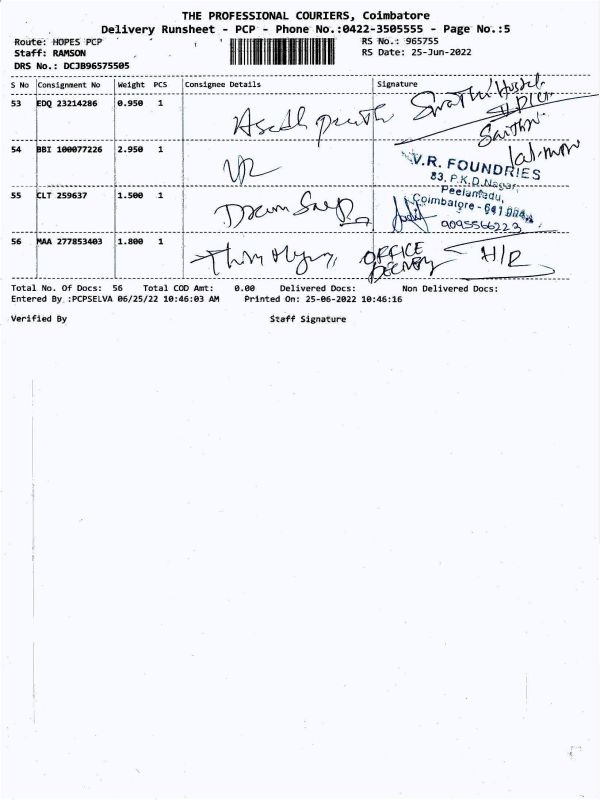 THE PROFESSIONAL COURIERS, Coimbatore
Delivery Runsheet - PCP - Phone No.:0422-3505555 - Page No.:5
Route: HOPES PCP
RS No.: 965755
Staff: RAMSON
RS Date: 25-Jun-2022
DRS No.: DCJB96575505
S No Consignment No Weight PCS Consignee Details Signature
53 EDQ 23214286 0.950 1
54 BBI 100077226 2.950 1 VR
V.R. FOUNDRIES
83, P.K.D.Nagar,
Peelamedu,
Coimbatore - 641 004
9095566223
55 CLT 259637 1.500 1
56 MAA 277853403 1.800 1 OFFICE H/R
DELIVERY
Total No. Of Docs: 56 Total COD Amt: 0.00 Delivered Docs: Non Delivered Docs:
Entered By :PCPSELVA 06/25/22 10:46:03 AM Printed On: 25-06-2022 10:46:16
Verified By Staff Signature